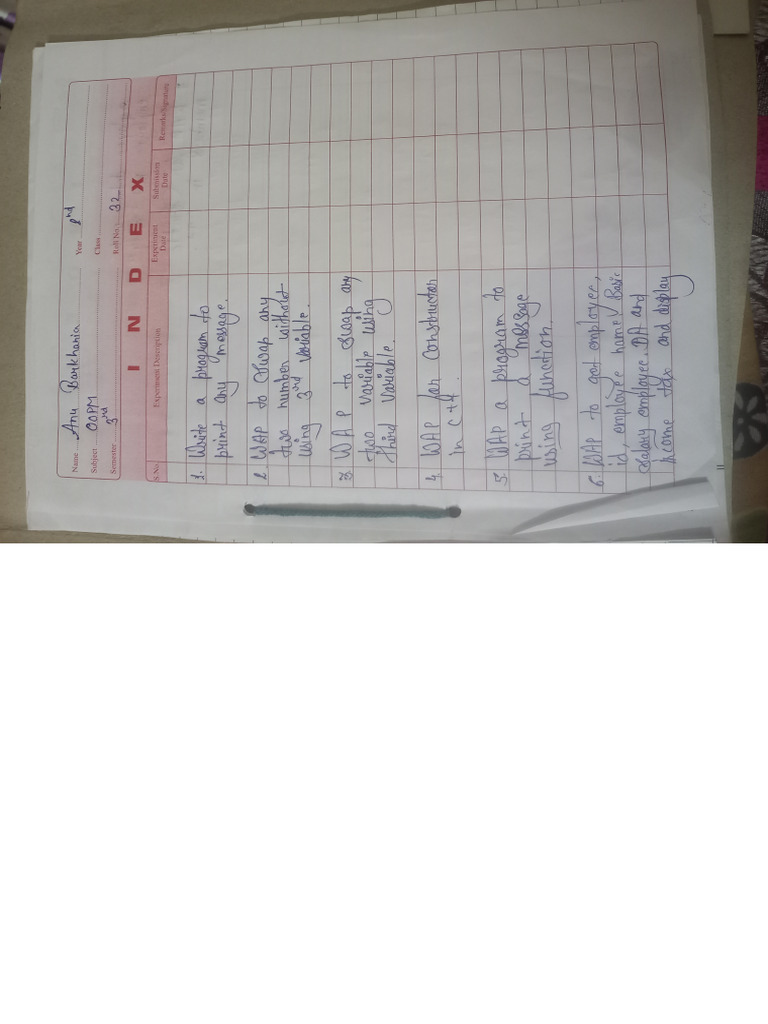 Name Anu Barkhania Year IInd
Subject OOPM Class
Semester 3rd Roll No. 32
INDEX
S.No. Experiment Description Experiment Date Submission Date Remarks/Signature
1. Write a program to
print any message.
2. WAP to Swap any
two number without
using 3rd variable.
3. WAP to Swap any
two variable using
third variable.
4. WAP for Construction
in C++.
5. WAP a program to
print a message
using function.
6. WAP to got employee,
id, employee name, Basic
salary employee. DA and
Income tax and display